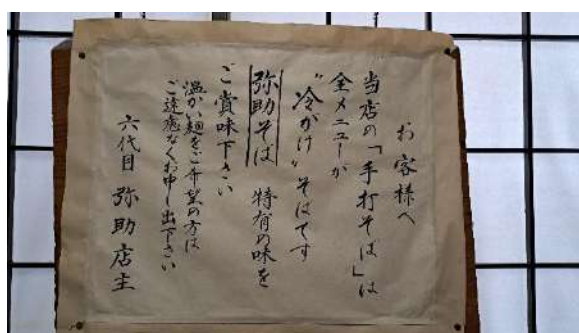 お客様へ
当店の「手打そば」は
全メニューが
"冷がけ"そばです
弥助そば 特有の味を
ご賞味下さい
温かい麺をご希望の方は
ご遠慮なくお申し出下さい
六代目 弥助店主